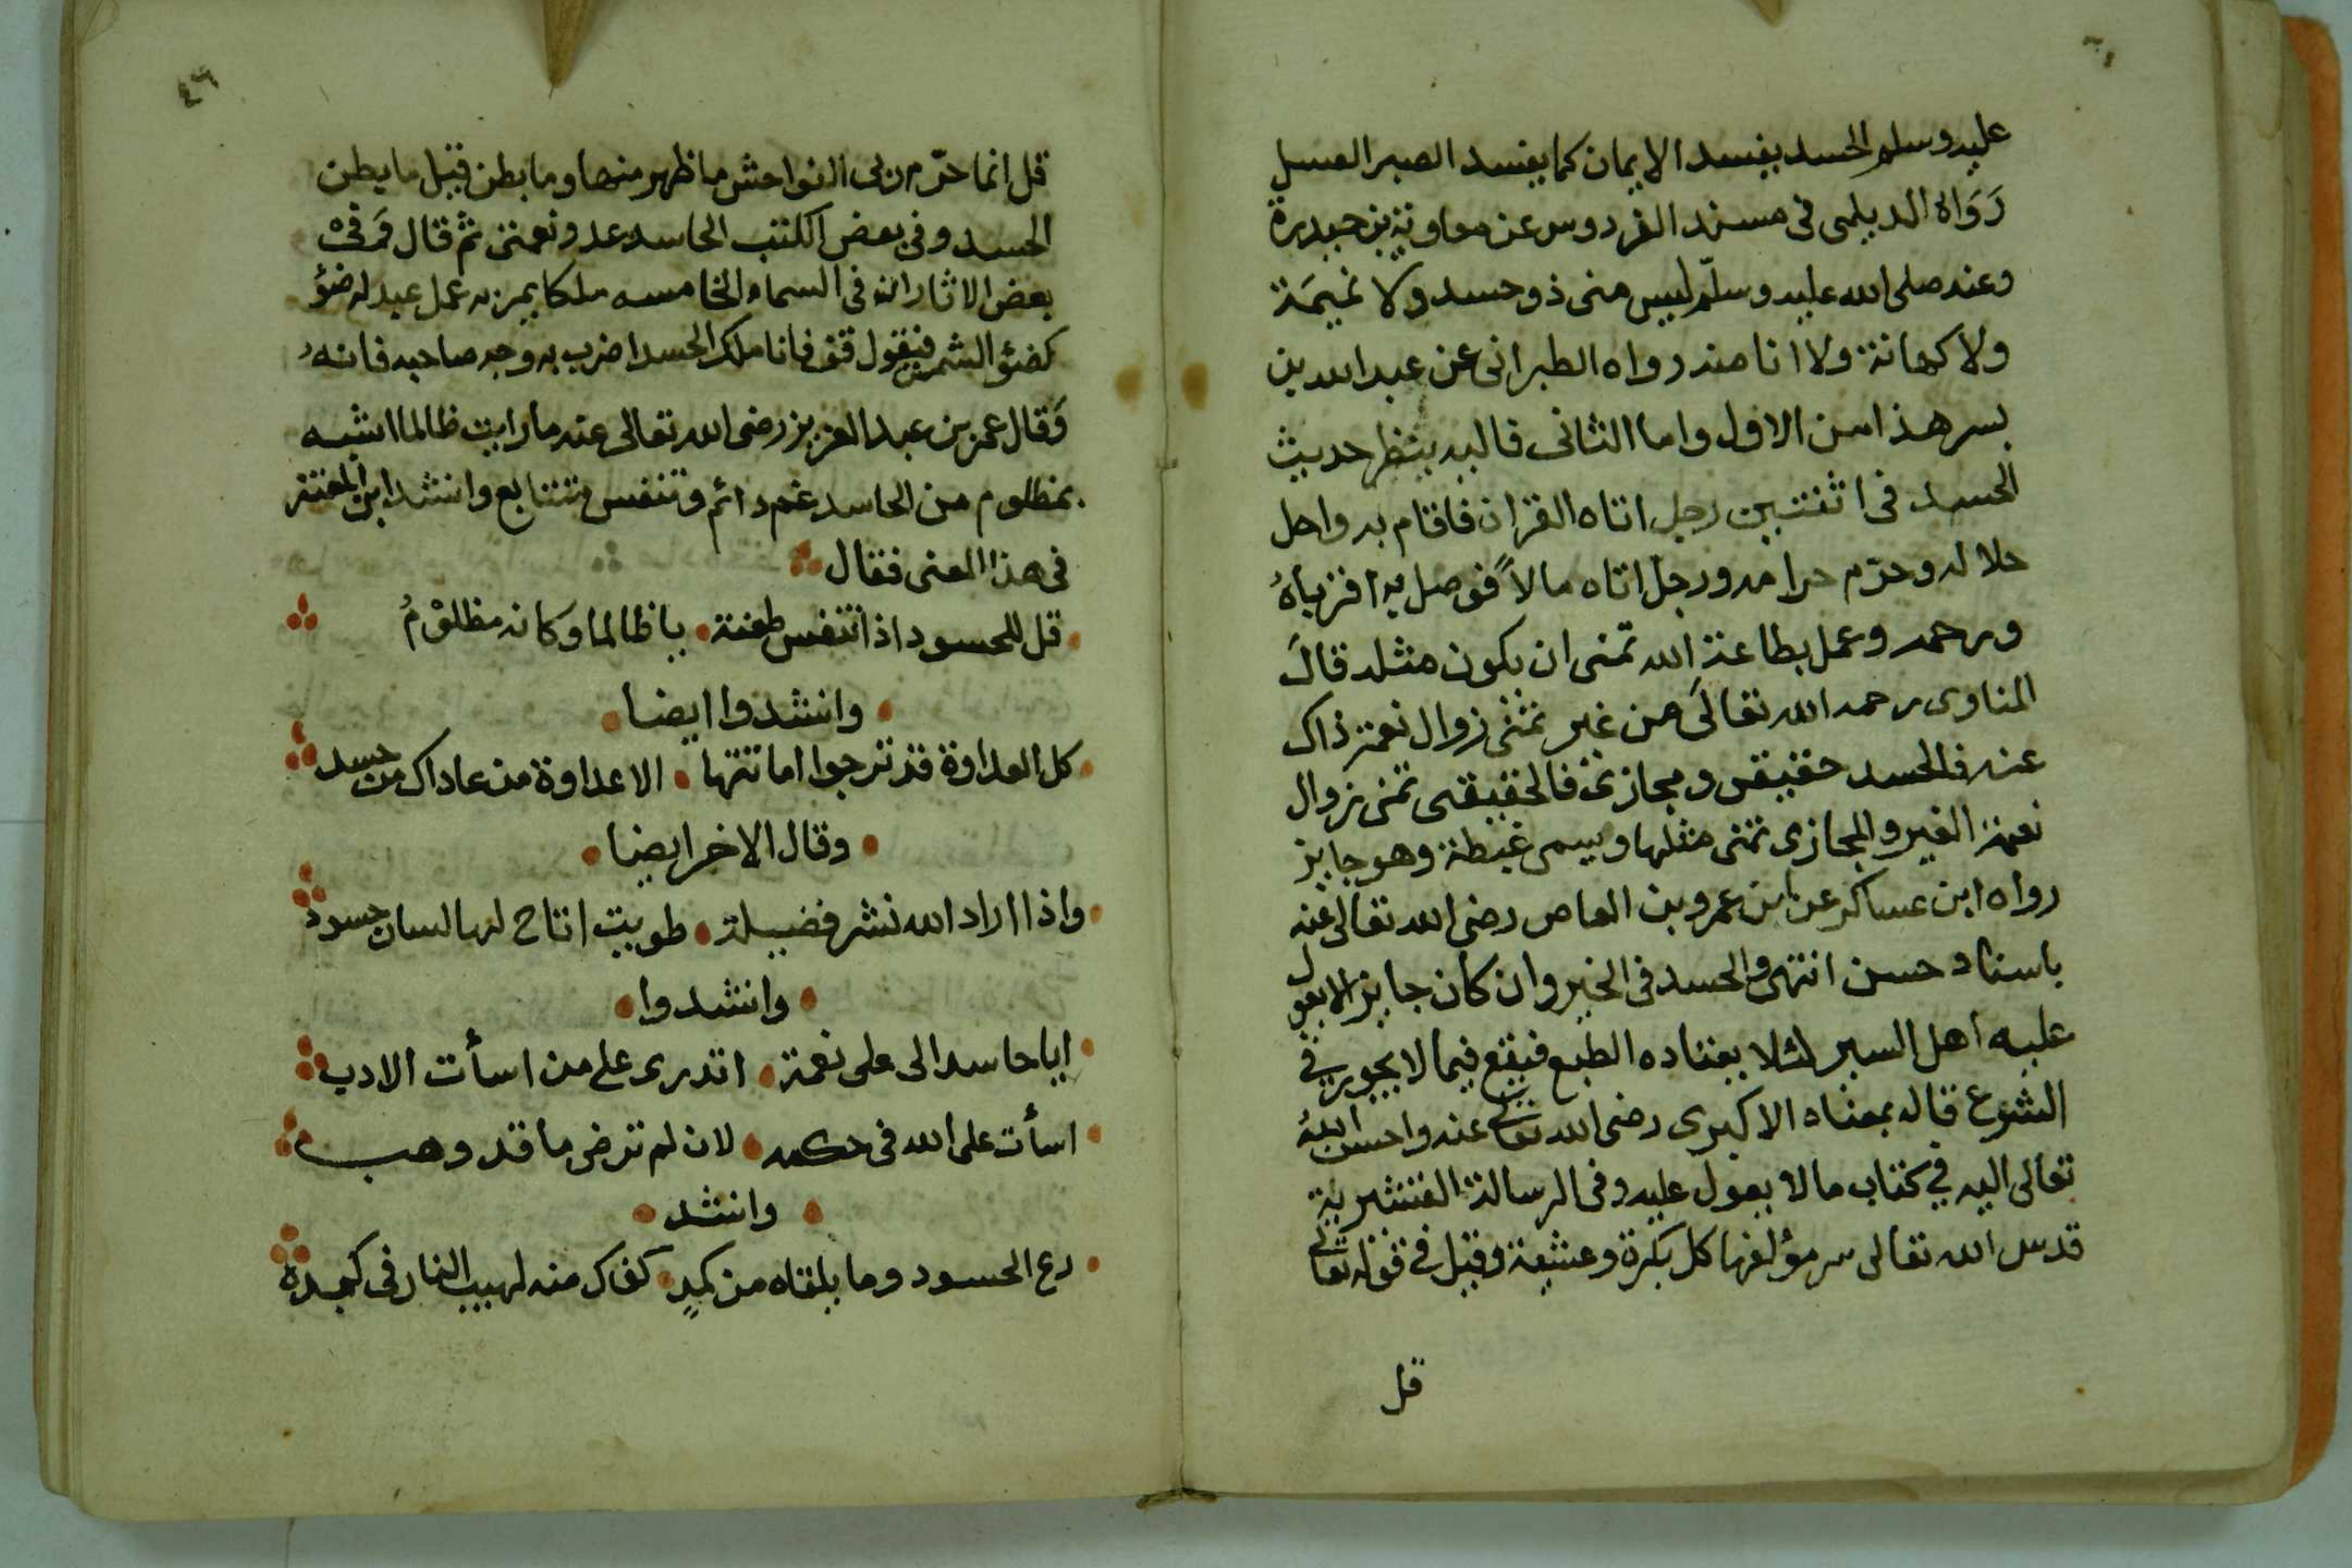 عليه وسلم الحسد يفسد الايمان كما يفسد الصبر العسل
رَوَاه الديلمى فى مسند الفردوس عن معاوية بن حيدرة
وعنه صلى الله عليه وسلّم ليس منى ذو حسد ولا نميمَة
ولا كهانة ولا انا منه رواه الطبرانى عن عبد الله بن
بسر هذا من الاول واما الثانى فاليه ينظر حديث
الحسد فى اثنتين رجل اتاه القران فاقام به واحل
حلاله وحرّم حرامه ورجل اتاه مالاً فوصل به اقرباهُ
ورحمه وعمل بطاعة الله تمنى ان يكون مثله قالَ
المناوى رحمه الله تعالىَ من غير تمنى زوال نعمة ذاك
عنه فالحسد حقيقى ومجازى فالحقيقى تمنى زوال
نعمة الغير والمجازى تمنى مثلها ويسمى غبطة وهو جايز
رواه ابن عساكر عن ابن عمرو بن العاص رضى الله تعالى عنه
باسناد حسن انتهى والحسد فى الخير وان كان جايز الا يعول
عليه اهل السير لئلا يعتاده الطبع فيقع فيما لا يجوز فى
الشرع قاله بمعناه الاكبرى رضى الله تعالى عنه واحسن الله
تعالى اليه في كتاب ما لا يعول عليه وفى الرسالة القشيرية
قدس الله تعالى سر مؤلفها كل بكرة وعشية وقيل في قوله تعالى
قل
٤٦
قل انما حرّم ربى الفواحش ما ظهر منها وما بطن قيل ما بطن
الحسد وفى بعض الكتب الحاسد عدو نعمتى ثم قال وَفىْ
بعض الاثار ان فى السماء الخامسه ملكا يمر به عمل عبد له ضؤ
كضؤ الشمس فيقول قف فانا ملك الحسد اضرب به وجه صاحبه فانهُ
وَقال عمر بن عبد العزيز رضى الله تعالى عنه ما رايت ظالما اشبه
بمظلوم من الحاسد غم دائم وتنفس متتابع وانشد ابن المعتز
فى هذا المعنى فقال
قل للحسود اذا تنفس طعنة يا ظالما وكانه مظلوْمُ
وانشدوا ايضا
كل العداوة قد ترجوا اماتتها الا عداوة من عاداك من حسد
وقال الاخر ايضا
واذا اراد الله نشر فضيلة طويت اتاح لها لسان حسود
وانشدوا
ايا حاسدا لى على نعمة اتدرى على من اسأت الادب
اسأت على الله فى حكمه لان لم ترض ما قد وهب
وانشد
دع الحسود وما يلقاه من كمدٍ كفاك منه لهيب النار فى كبده